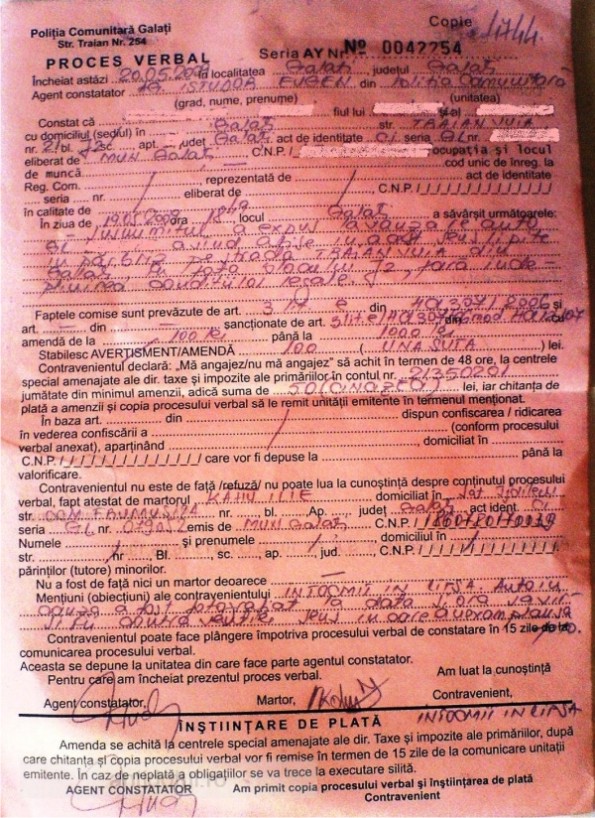 Poliția Comunitară Galați
Str. Traian Nr. 254
Copie
PROCES VERBAL Seria AY Nr. Nº 0042254
Încheiat astăzi 20.05. la localitatea Galați, județul Galați
Agent constatator ISTUDOR EUGEN din Poliția Comunitara
(grad, nume, prenume) (unitatea)
Constat că fiul lui
cu domiciliul (sediul) în Galați str. TRAIAN VUIA
nr. 21 bl. J2 sc. , apt. – județ Galați act de identitate C.i. seria GL nr.
eliberat de MUN Galați C.N.P. / ocupația și locul
de muncă cod unic de înreg. la
Reg. Com. , reprezentată de act de identitate
seria nr. eliberat de , C.N.P. / / / / / / / / / / / / / /
în calitate de
În ziua de 19.05.2009 ora locul Galați a săvârșit următoarele:
– Numitul a expus la vanzare auto
în pe strada TRAIAN VUIA din
Galați, în fața blocului J2, fara inde-
plinirea conditiilor legale.
Faptele comise sunt prevăzute de art. 3 din HCL 307/2006 și
art. – din – sancționate de art. HCL
amendă de la 100 lei până la 1000 lei
Stabilesc AVERTISMENT/AMENDĂ 100 ( UNA SUTA ) lei.
Contravenientul declară: „Mă angajez/nu mă angajez” să achit în termen de 48 ore, la centrele
special amenajate ale dir. taxe și impozite ale primăriilor în contul nr. 21350201
jumătate din minimul amenzii, adică suma de 50 (CINCIZECI) lei, iar chitanța de
plată a amenzii și copia procesului verbal să le remit unității emitente în termenul menționat.
În baza art. din dispun confiscarea / ridicarea
în vederea confiscării a (conform procesului
verbal anexat), aparținând , domiciliat în
C.N.P. / / / / / / / / / / / / / / care vor fi depuse la până la
valorificare.
Contravenientul nu este de față /refuză/ nu poate lua la cunoștință despre conținutul procesului
verbal, fapt atestat de martorul ILIE domiciliat în
str. nr. – bl. –, Ap. – , județ Galați act ident. Ci
seria GL nr. emis de MUN Galați C.N.P.
Numele și prenumele domiciliul în
str. nr. Bl. , sc. , ap. , jud. C.N.P. / / / / / / / / / / / / / /
părinților (tutore) minorilor.
Nu a fost de față nici un martor deoarece –
Mențiuni (obiecțiuni) ale contravenientului INTOCMIT IN LIPSA. Autoin
a fost fotografiat la data, ora
Contravenientul poate face plângere împotriva procesului verbal de constatare în 15 zile de la
comunicarea procesului.
Aceasta se depune la unitatea din care face parte agentul constatator.
Pentru care am încheiat prezentul proces verbal. Am luat la cunoștință
Agent constatator, Martor, Contravenient,
INTOCMIT IN LIPSA
ÎNȘTIINȚARE DE PLATĂ
Amenda se achită la centrele special amenajate ale dir. Taxe și impozite ale primăriilor, după
care chitanța și copia procesului verbal vor fi remise în termen de 15 zile de la comunicare unității
emitente. În caz de neplată a obligațiilor se va trece la executare silită.
AGENT CONSTATATOR Am primit copia procesului verbal și înștiințarea de plată
Contravenient